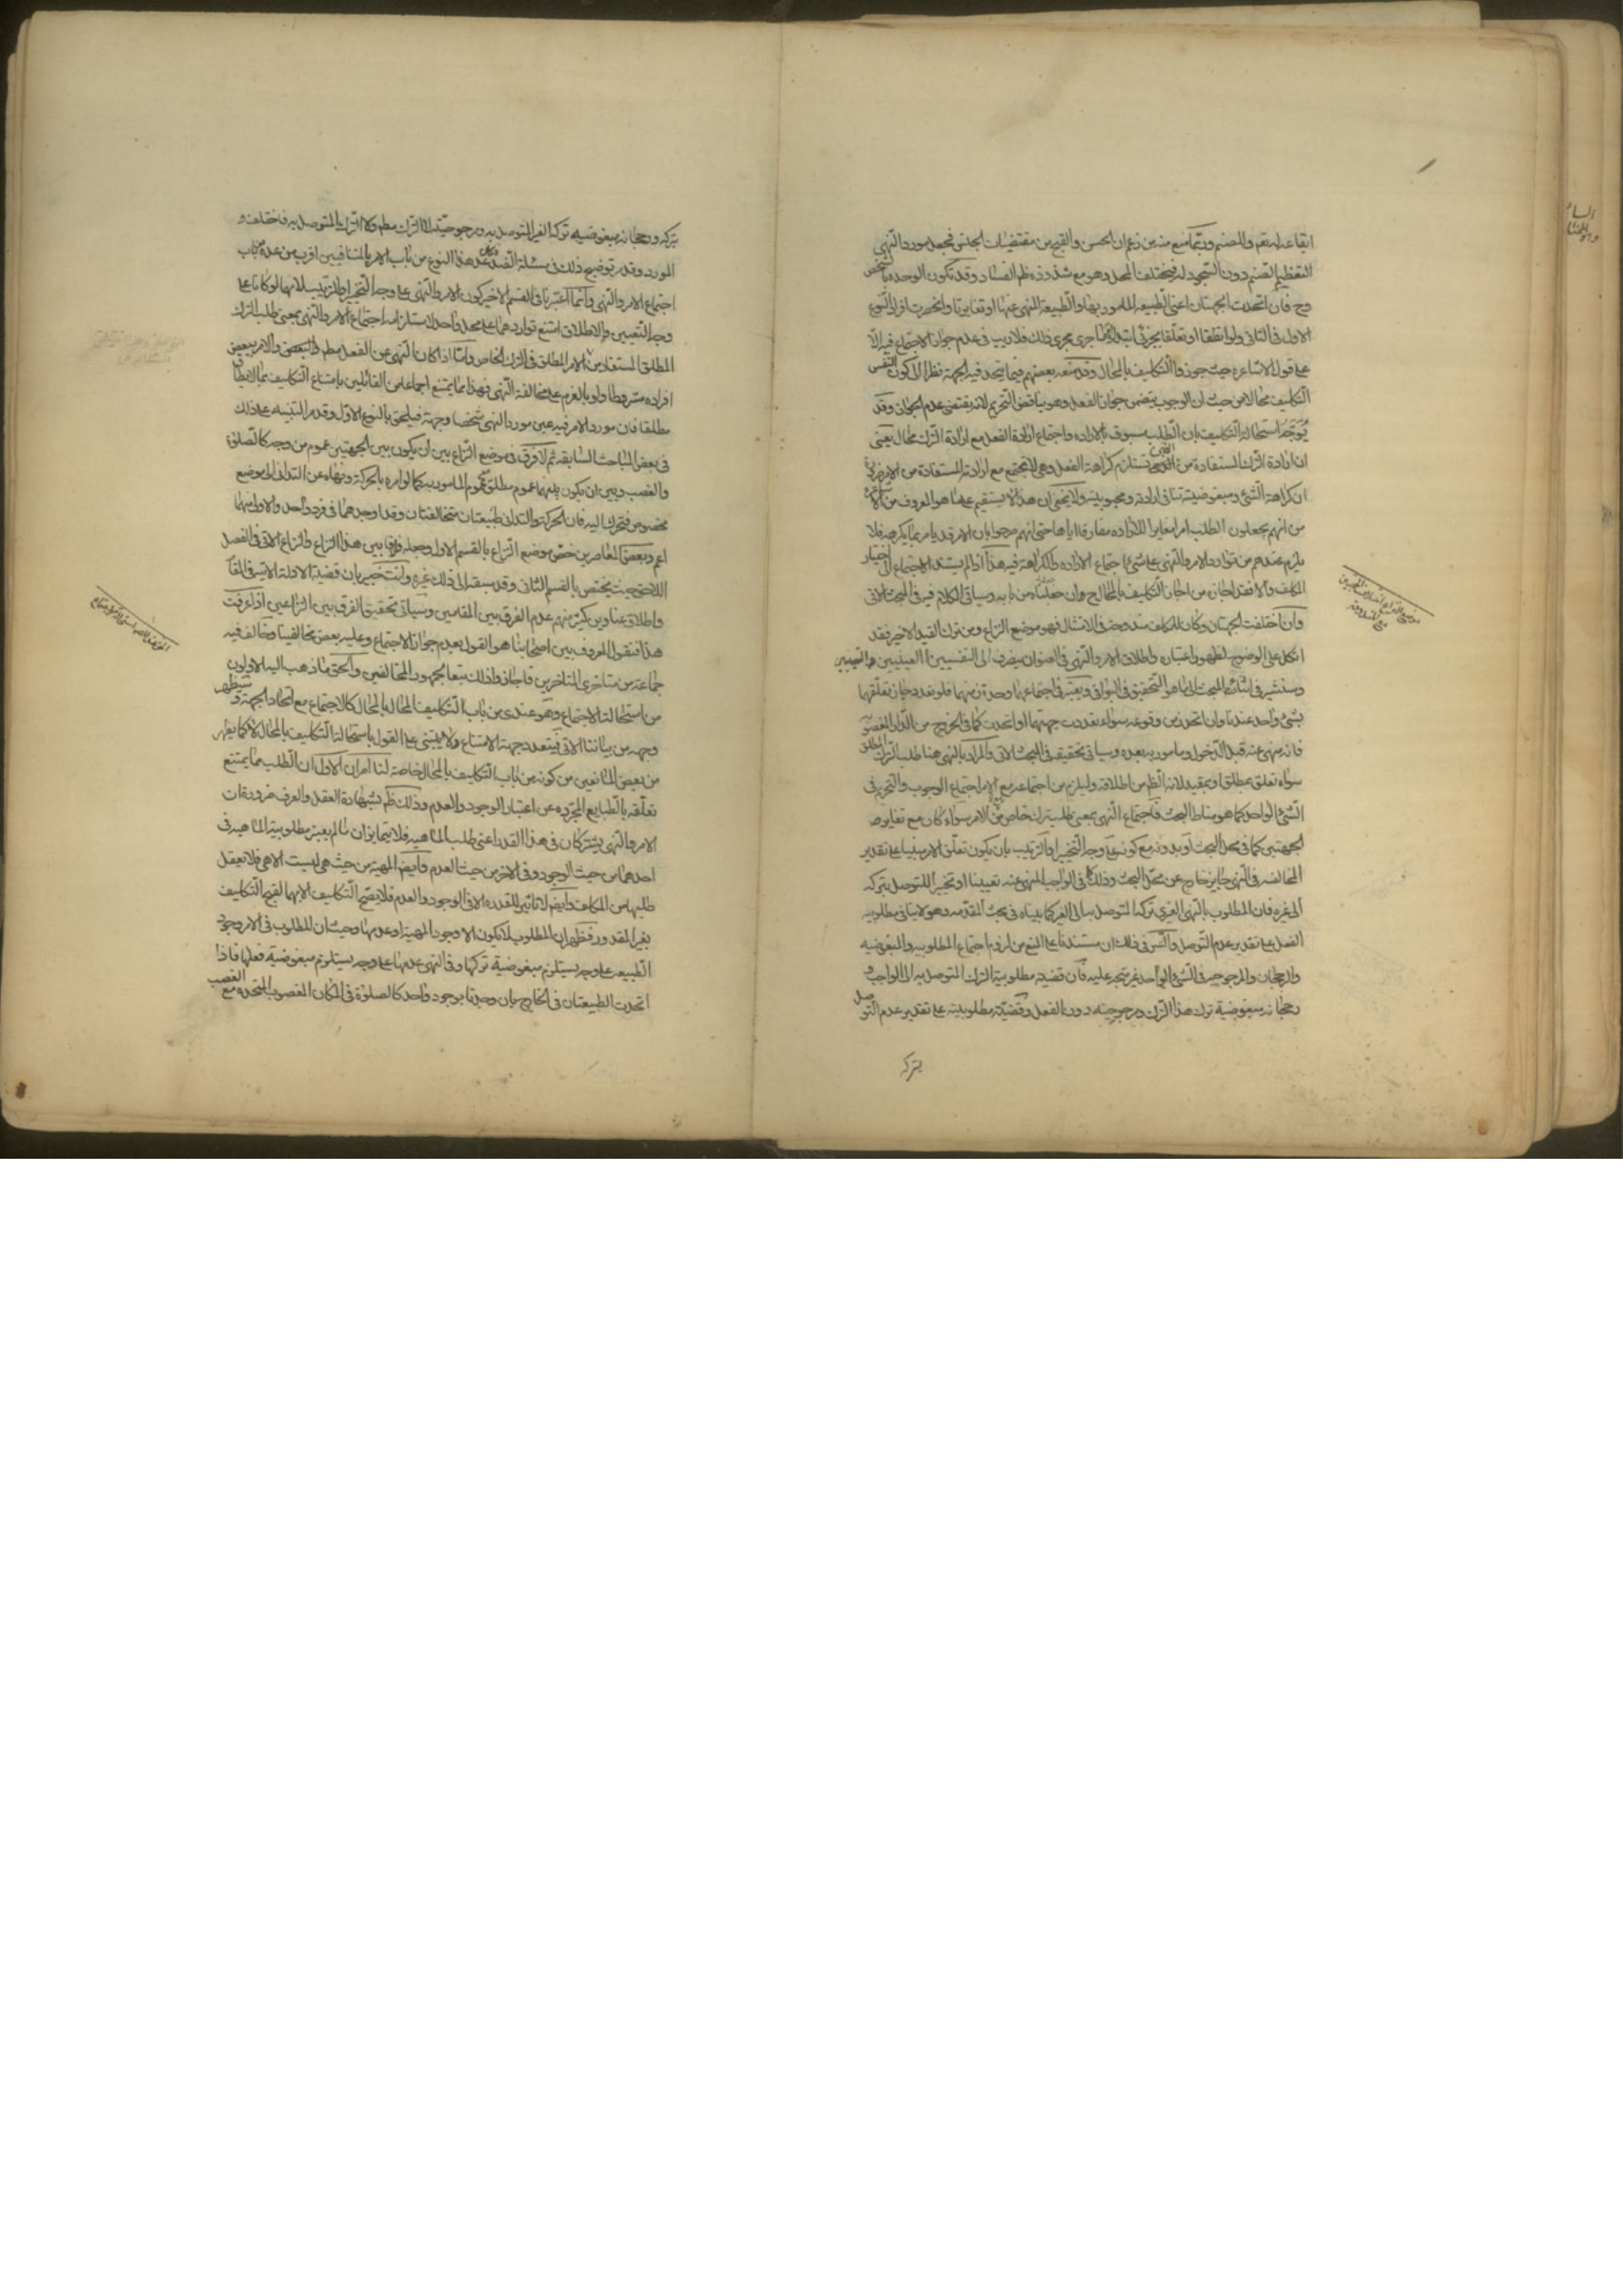 ايقاعه له تعم وللصنم وربما منع منه من زعم ان الحسن والقبح من مقتضيات الجنس فجعل مورد النهى
التعظيم للصنم دون السجود له فيختلف المحل وهو مع شذوذه ظم الفساد وقد تكون الوحدة بالشخص
وح فان اتحدت الجهتان اعنى الطبيعة المامور بها والطبيعة المنهى عنها او تغايرتا وانحصرت افراد النوع
الاول فى الثانى ولو اتفاقا او تعلقا بجزئى ابتداء جرى مجرى ذلك فلا ريب فى عدم جواز الاجتماع فيه الا
على قول الاشاعرة حيث جوزوا التكليف بالمحال وقد منعه بعضهم فيما يتحد فيه الجهة نظرا الى كون نفس
التكليف محالا من حيث ان الوجوب يتضمن جواز الفعل وهو يناقض التحريم لانه يقتضى عدم الجواز وقد
يوجه استحالة التكليف بان الطلب مسبوق بالارادة واجتماع ارادة الفعل مع ارادة الترك محال يعنى
ان ارادة الترك المستفادة من النهى تستلزم كراهة الفعل وهى لا تجتمع مع ارادته المستفادة من الامر ضرورة
ان كراهة الشئ ومبغوضيته تنافى ارادته ومحبوبيته ولا يخفى ان هذا لا يستقيم على ما هو المعروف من الاشاعرة
من انهم يجعلون الطلب امرا مغايرا للارادة مفارقا اياها حتى انهم صرحوا بان الامر قد يامر بما يكرهه فلا
يلزم عندهم من توارد الامر والنهى على شئ اجتماع الارادة والكراهة فيه هذا اذا لم يستند الاجتماع الى اختيار
المكلف والا فقد اجازه من اجاز التكليف بالمحال ح وان جعلناه من بابه وسياتى الكلام فيه فى المبحث الاتى
وان اختلفت الجهتان وكان للمكلف مندوحة فى الامتثال فهو موضع النزاع ومن ترك القيد الاخير فقد
اتكل على الوضوح لظهور اعتباره واطلاق الامر والنهى فى العنوان ينصرف الى النفسيين العينيين التعيينيين
وسنشير فى اثناء المبحث الى ما هو التحقيق فى البواقى ويعتبر فى اجتماعهما وحدة زمنهما فلو تعدد جاز تعلقهما
بشئ واحد عندنا وان اتحد زمن وقوعه سواء تعددت جهتهما او اتحدت كما فى الخروج من الدار المغصوبة
فانه منهى عنه قبل الدخول ومامور به بعده وسياتى تحقيقه فى المبحث الاتى والمراد بالنهى هنا طلب الترك المطلق
سواء تعلق بمطلق او بمقيد لانه الظم من اطلاقه وليلزم من اجتماعه مع الامر اجتماع الوجوب والتحريم فى
الشئ الواحد كما هو مناط البحث فاجتماع النهى بمعنى طلب ترك خاص مع الامر سواء كان مع تغاير
الجهتين كما فى محل البحث او بدونه مع كونه على وجه التخيير او الترتيب بان يكون تعلق الامر مبنيا على تقدير
المخالفة فى النهى جايز خارج عن محل البحث وذلك كما فى الواجب المنهى عنه تعيينا او تخييرا للتوصل بتركه
الى غيره فان المطلوب بالنهى الغيرى تركه المتوصل به الى الغير كما بيناه فى بحث المقدمة وهو لا ينافى مطلوبية
الفعل على تقدير عدم التوصل والسر فى ذلك ان مستندنا على المنع من لزوم اجتماع المطلوبية والمبغوضية
والرجحان والمرجوحية فى الشئ الواحد غير متجه عليه فان قضية مطلوبية الترك المتوصل به الى الواجب و
رجحانه مبغوضية ترك هذا الترك ومرجوحيته دون الفعل وقضية مطلوبيته على تقدير عدم التوصل
بتركه
بتركه ورجحانه مبغوضية تركه الغير المتوصل به ومرجوحيته لا الترك مطم ولا الترك المتوصل به فاختلف
المورد وقد مر توضيح ذلك فى مسئلة الضد وعد هذا النوع من باب الامر بالمتنافيين اقرب من عده من باب
اجتماع الامر والنهى وانما اعتبرنا فى القسم الاخير كون الامر والنهى على وجه التخيير او الترتيب لانهما لو كانا على
وجه التعيين والاطلاق امتنع تواردهما على محل واحد لاستلزامه اجتماع الامر والنهى بمعنى طلب الترك
المطلق المستفاد من الامر المطلق فى الترك الخاص واما اذا كان النهى عن الفعل مطم او البعض والامر ببعض
افراده مشروطا ولو بالعزم على مخالفة النهى فهذا مما يمتنع اجماعا من القائلين بامتناع التكليف بما لا يطاق
مطلقا فان مورد الامر فيه عين مورد النهى شخصا وجهة فيلحق بالنوع الاول وقد مر التنبيه على ذلك
فى بعض المباحث السابقة ثم لا فرق فى موضع النزاع بين ان يكون بين الجهتين عموم من وجه كالصلوة
والغصب وبين ان يكون بينهما عموم مطلق مع عموم المامور به كما لو امره بالحركة ونهاه عن التدانى الى موضع
مخصوص فتحرك اليه فان الحركة والتدانى طبيعتان متخالفتان وقد اوجدهما فى فرد واحد والاولى منهما
اعم وبعض المعاصرين خص موضع النزاع بالقسم الاول وجعله فارقا بين هذا النزاع والنزاع الاتى فى الفصل
اللاحق حيث يختص بالقسم الثانى وقد سبقه الى ذلك غيره وانت خبير بان قضية الادلة الاتية فى المقام
واطلاق عناوين كثير منهم عدم الفرق بين المقامين وسياتى تحقيق الفرق بين النزاعين اذا عرفت
هذا فنقول المعروف بين اصحابنا هو القول بعدم جواز الاجتماع وعليه بعض مخالفينا وخالف فيه
جماعة من متاخرى المتاخرين فاجازوا ذلك تبعا لجمهور المخالفين والحق ما ذهب اليه الاولون
من استحالة الاجتماع وهو عندى من باب التكليف المحال لا بالمحال كالاجتماع مع اتحاد الجهة وسيظهر
وجهه من بياننا الاتى فيتعدد جهة الامتناع ولا يبتنى على القول باستحالة التكليف بالمحال لا كما يظهر
من بعض المانعين من كونه من باب التكليف بالمحال خاصة لنا امران الاول ان الطلب مما يمتنع
تعلقه بالطبايع المجردة عن اعتبار الوجود والعدم وذلك ظم بشهادة العقل والعرف ضرورة ان
الامر والنهى يشتركان فى هذا القدر اعنى طلب الماهية فلا يتمايزان ما لم يعتبر مطلوبية الماهية فى
احدهما من حيث الوجود وفى الاخر من حيث العدم وايضم المهية من حيث هى ليست الا هى فلا يعقل
طلبها من المكلف وايضم لا تاثير للقدرة الا فى الوجود والعدم فلا يصح التكليف الا بهما لقبح التكليف
بغير المقدور فظهر ان المطلوب لا يكون الا وجود المهية او عدمها وحيث ان المطلوب فى الامر وجود
الطبيعة على وجه يستلزم مبغوضية تركها وفى النهى عدمها على وجه يستلزم مبغوضية فعلها فاذا
اتحدت الطبيعتان فى الخارج بان وجدتا بوجود واحد كالصلوة فى المكان المغصوب المتحدة مع الغصب